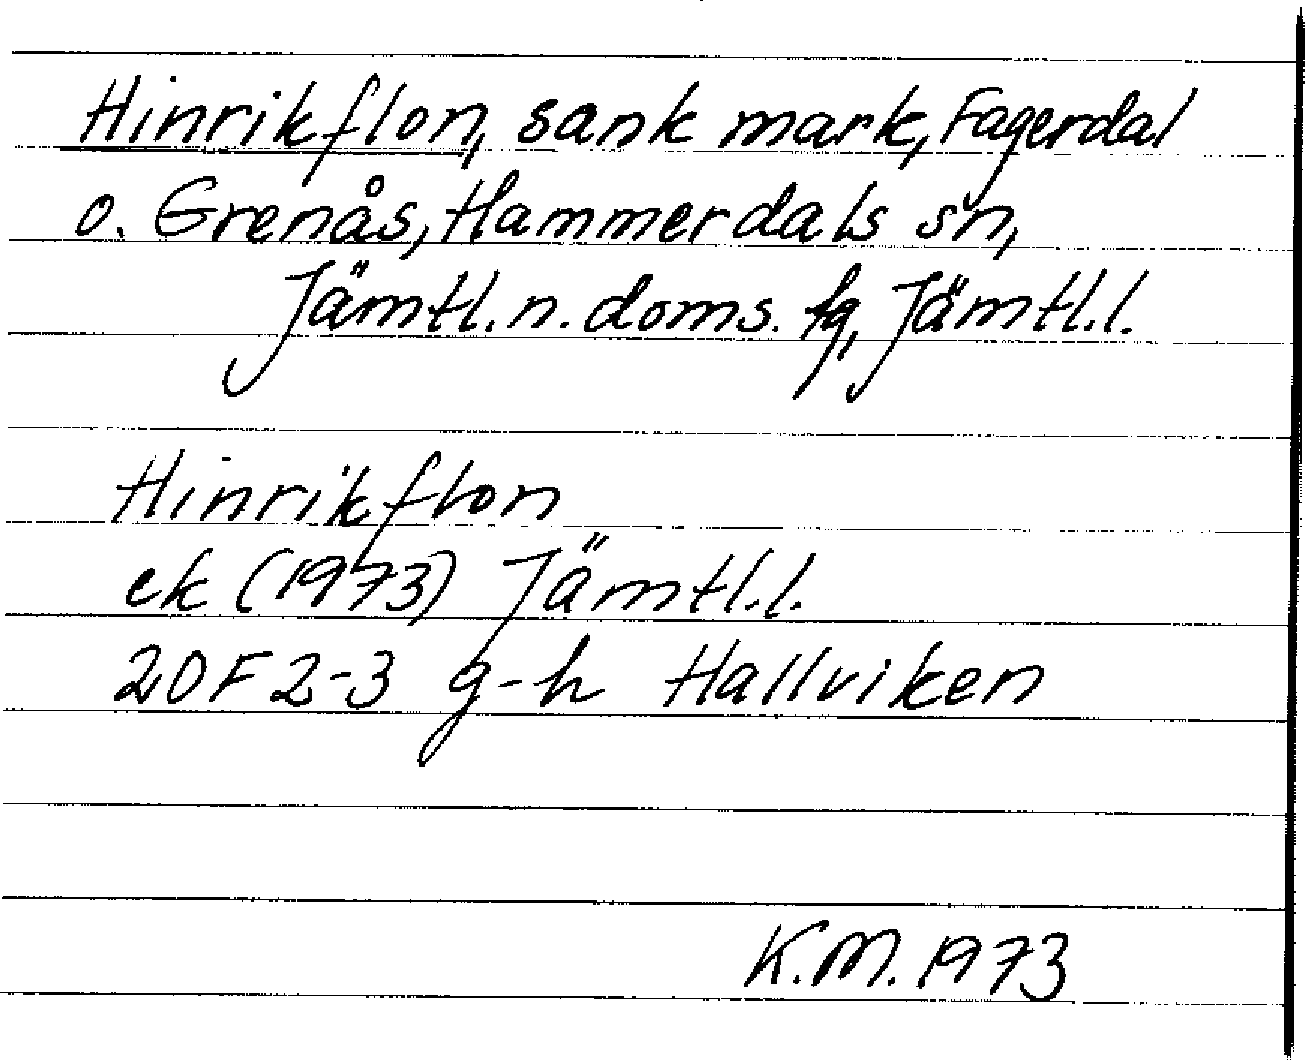 Hinrikflon, sank mark, Fagerdal
o. Grenås, Hammerdals sn,
Jämtl. n. doms. fg, Jämtl. l.
Hinrikflon
ek (1973) Jämtl. l.
20F 2-3 g-h Hallviken
K.M. 1973